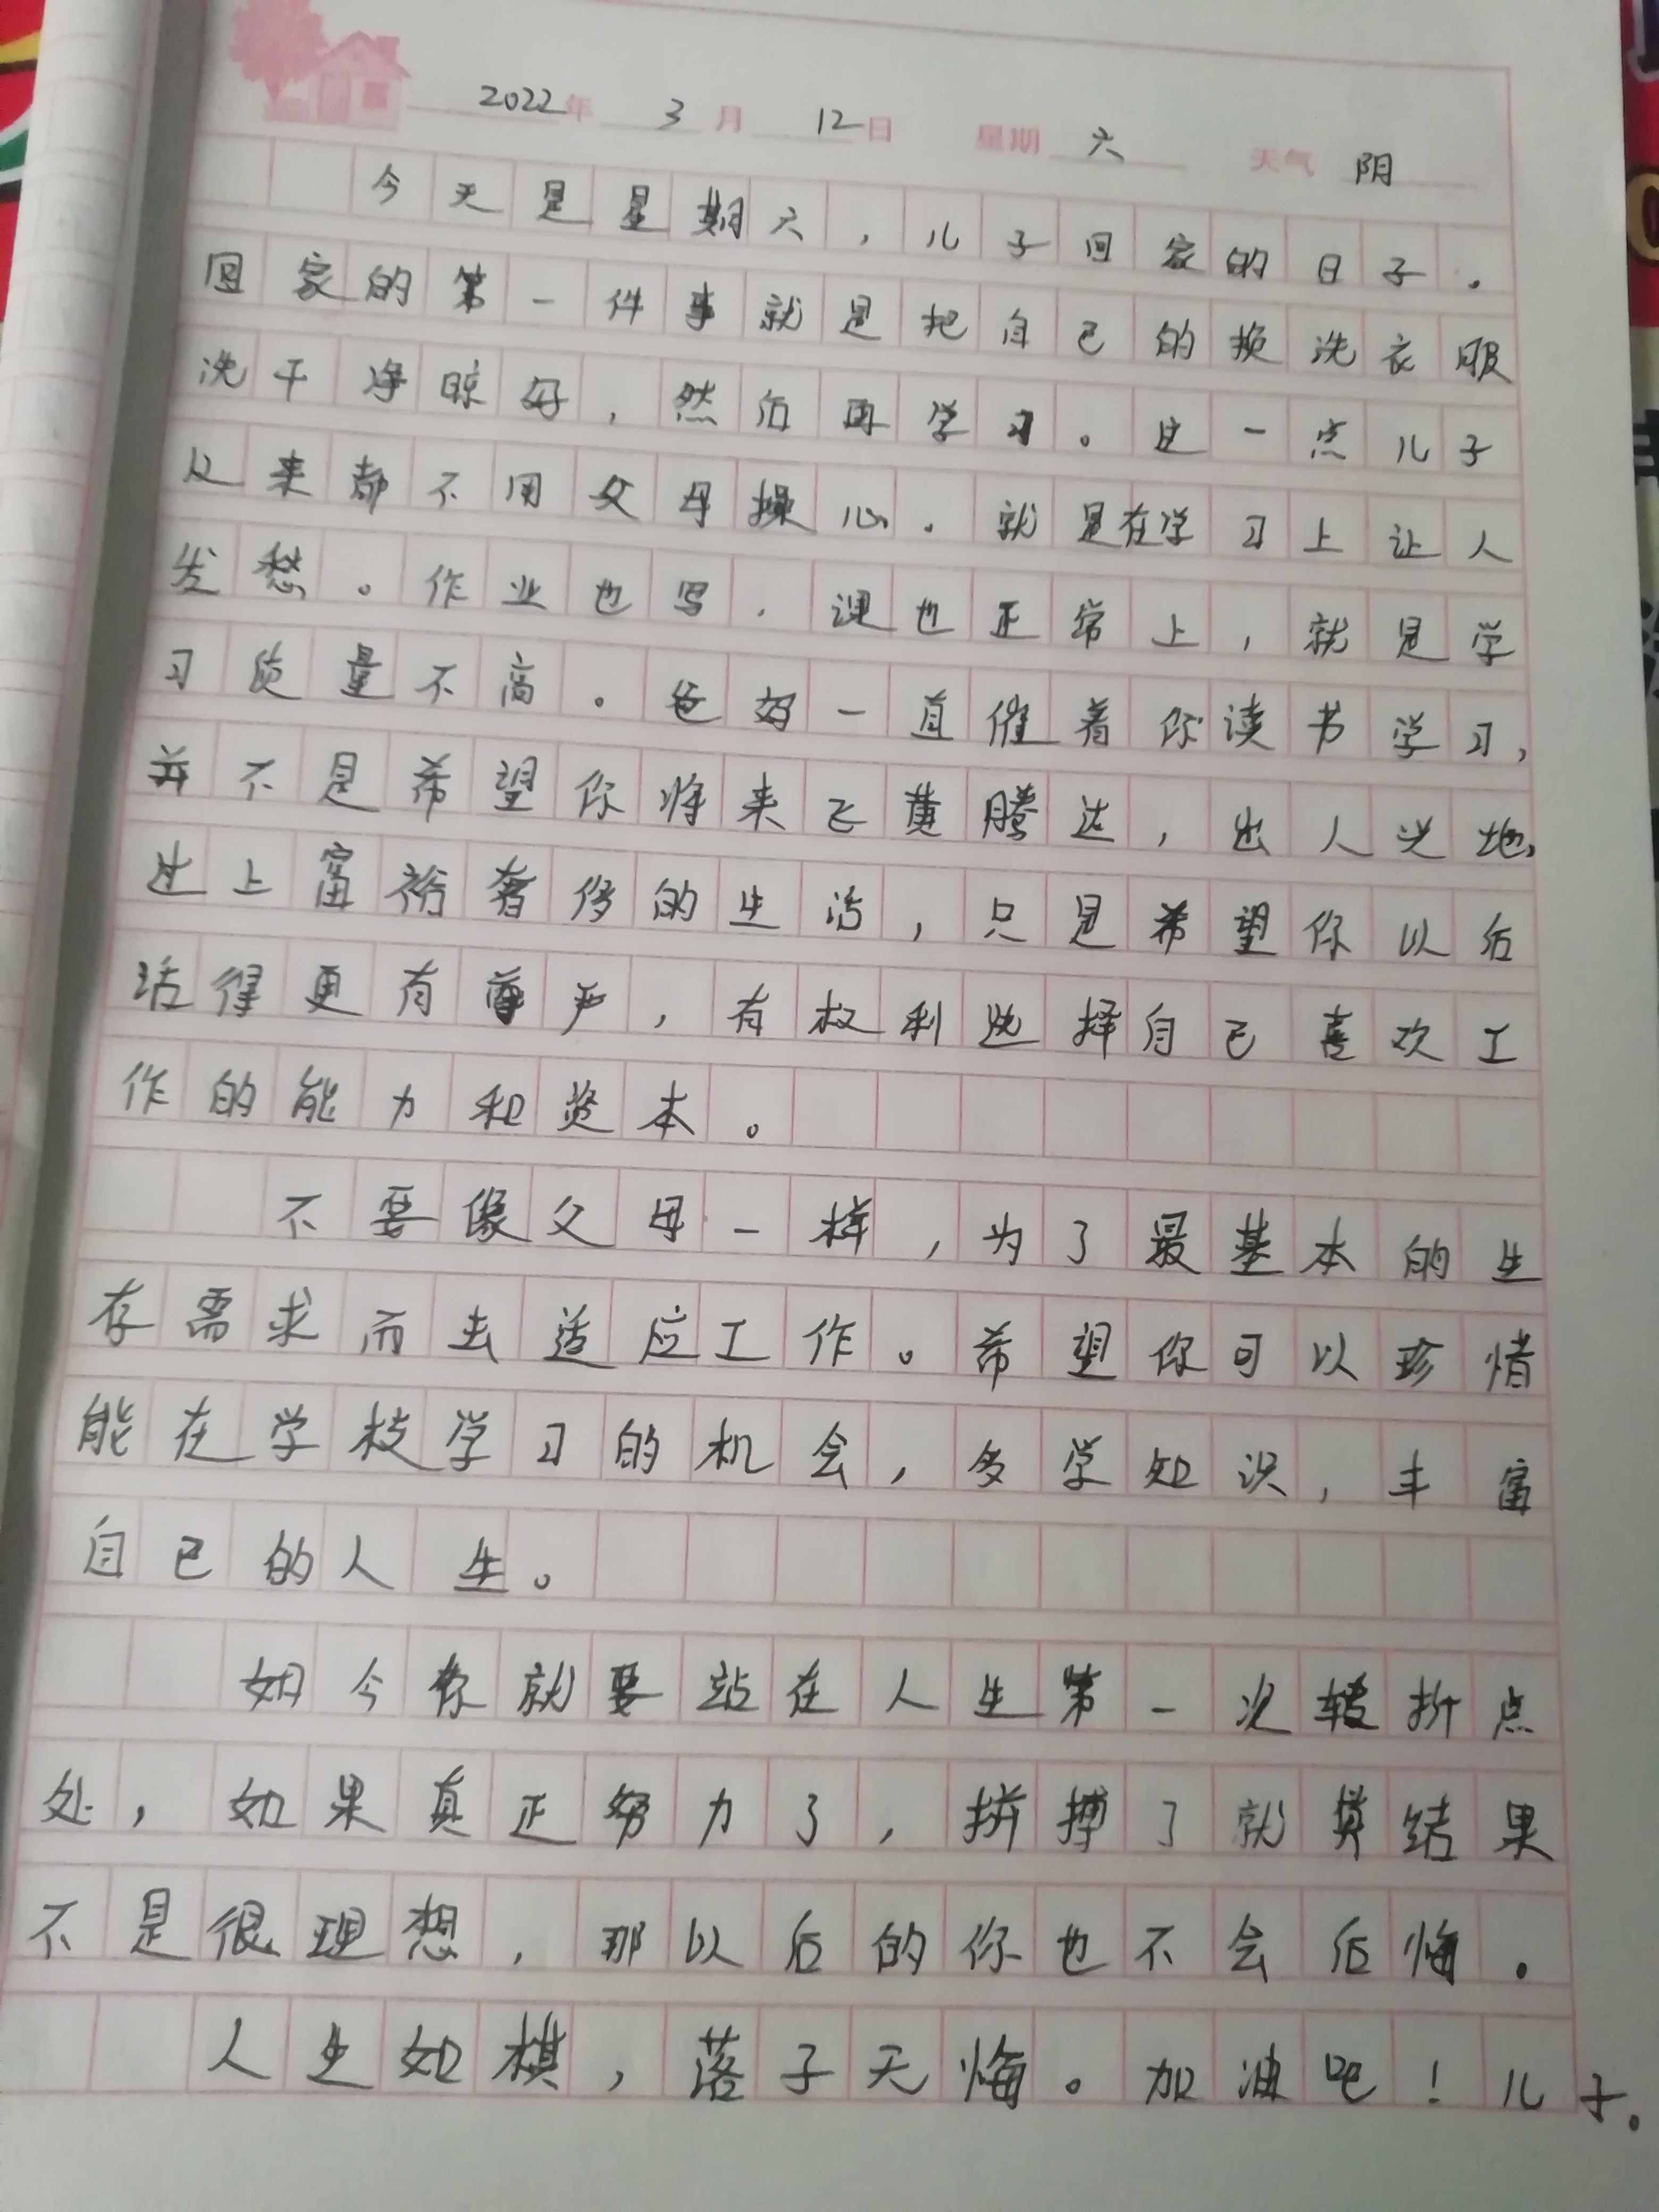 2022年 3月 12日 星期 六 天气 阴
今天是星期六，儿子回家的日子。
回家的第一件事就是把自己的换洗衣服
洗干净晾好，然后再学习。这一点儿子
从来都不用父母操心。就是在学习上让人
发愁。作业也写，课也正常上，就是学
习质量不高。爸妈一直催着你读书学习，
并不是希望你将来飞黄腾达，出人头地，
过上富裕奢侈的生活，只是希望你以后
活得更有尊严，有权利选择自己喜欢工
作的能力和资本。
不要像父母一样，为了最基本的生
存需求而去适应工作。希望你可以珍惜
能在学校学习的机会，多学知识，丰富
自己的人生。
如今你就要站在人生第一次转折点
处，如果真正努力了，拼搏了就算结果
不是很理想，那以后的你也不会后悔。
人生如棋，落子无悔。加油吧！儿子。